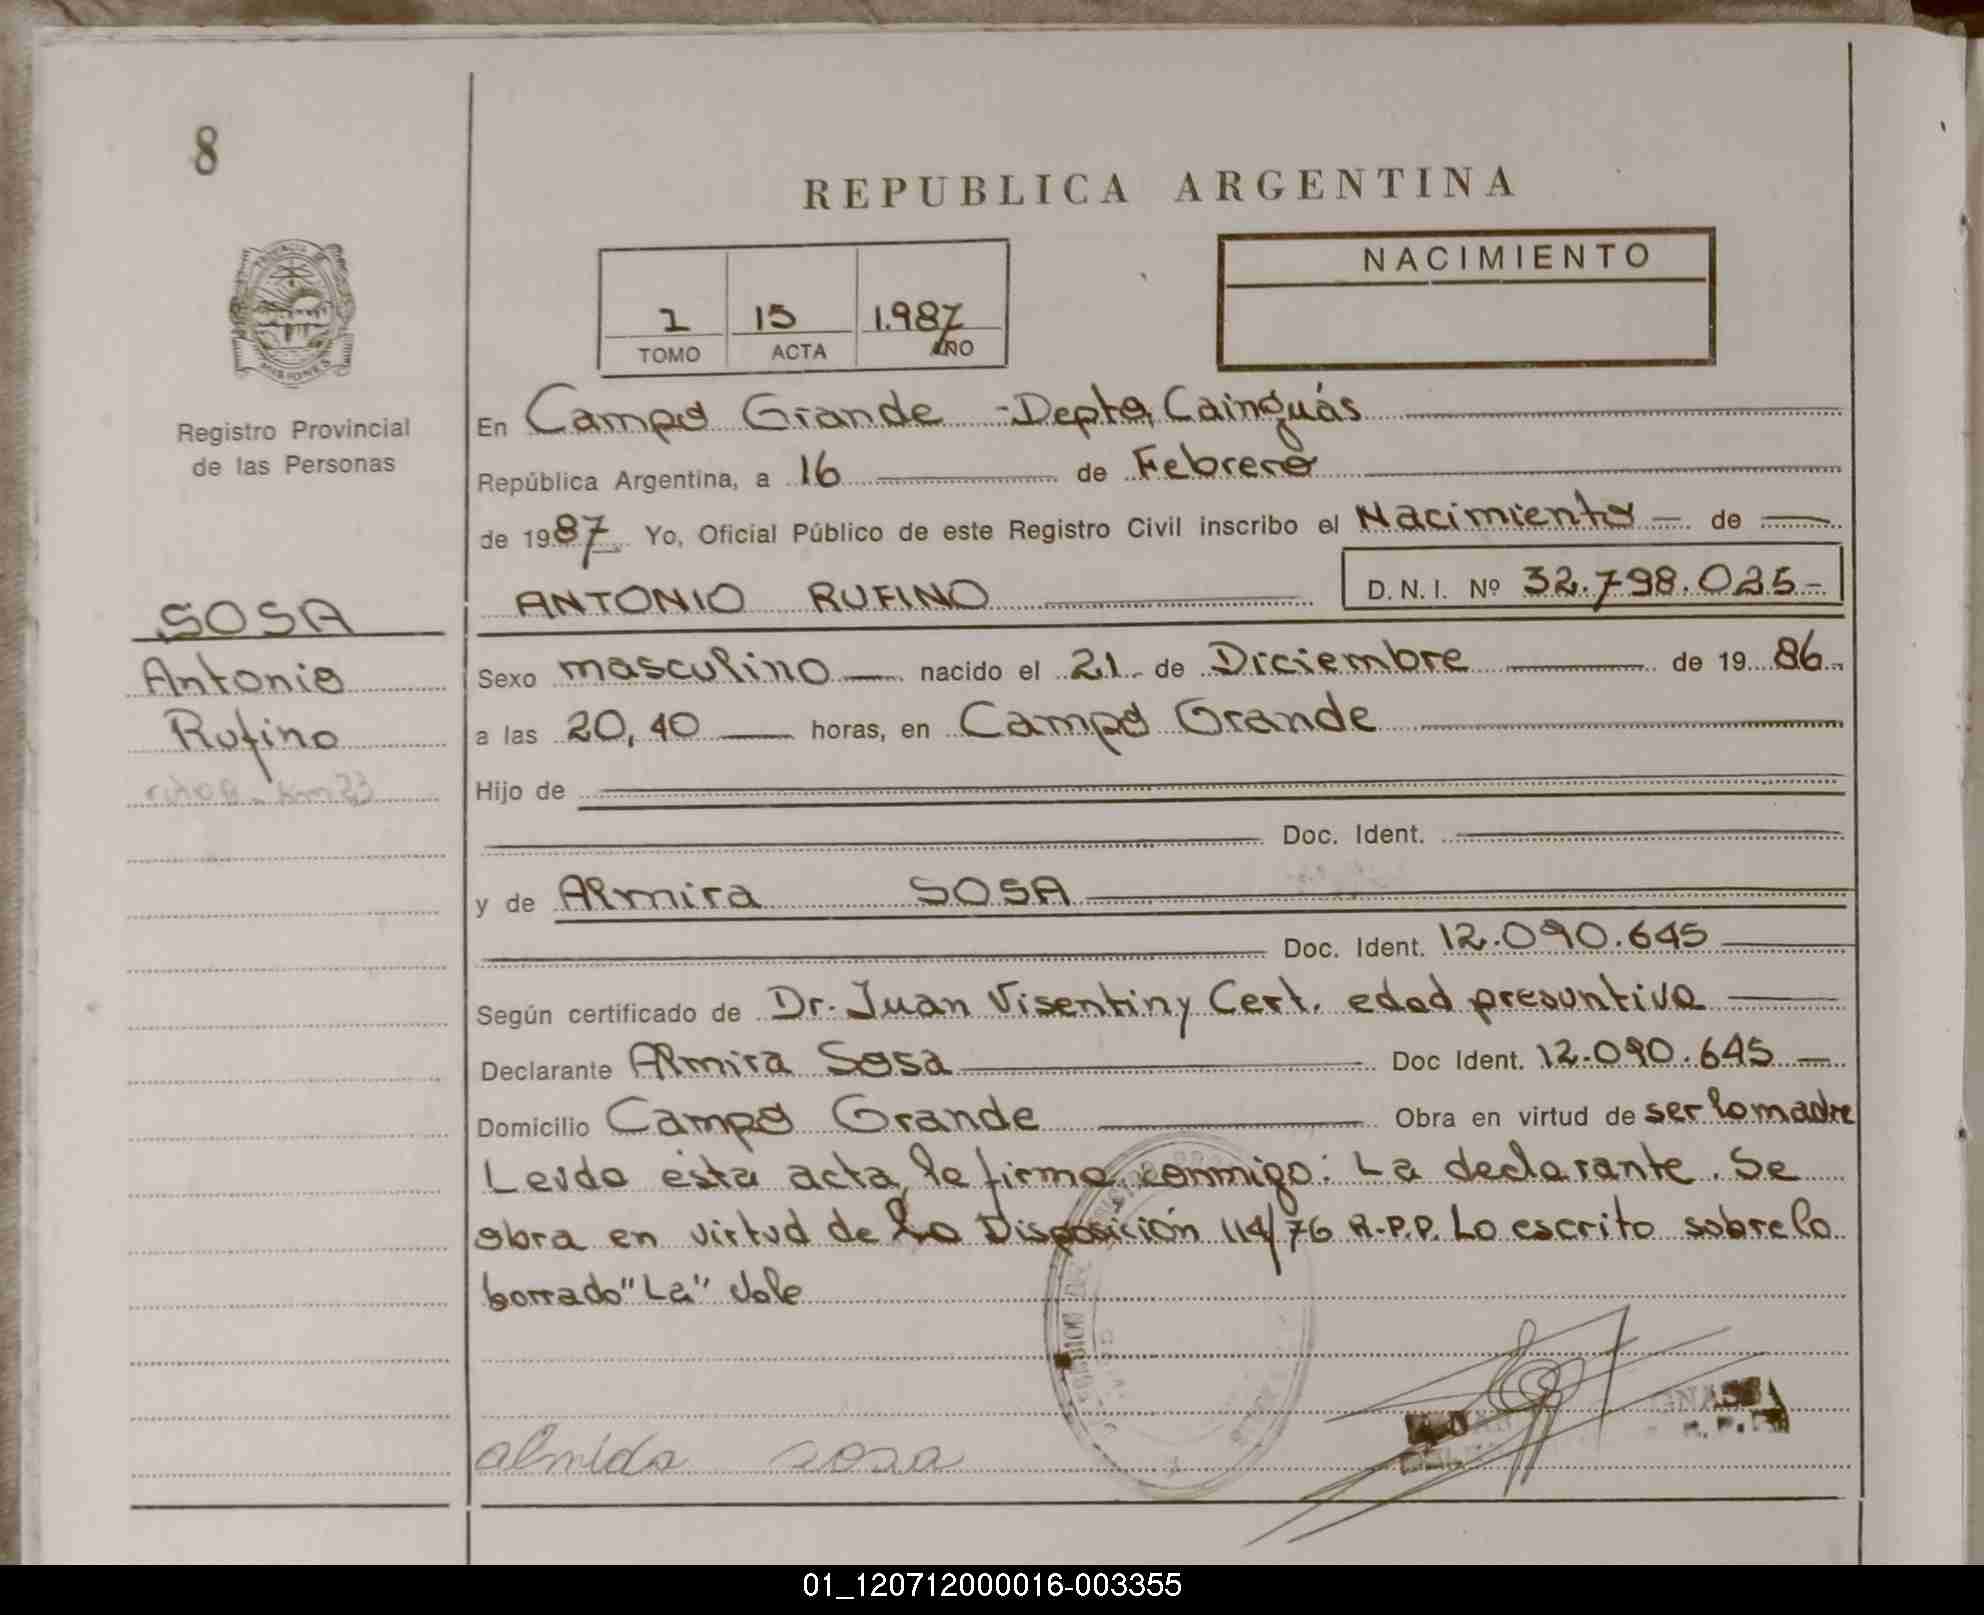 8
REPUBLICA ARGENTINA
NACIMIENTO
1 15 1.987
TOMO ACTA AÑO
Registro Provincial
de las Personas
En Campo Grande - Depto, Cainguás
República Argentina, a 16 de Febrero
de 1987 Yo, Oficial Público de este Registro Civil inscribo el Nacimiento de
ANTONIO RUFINO D. N. I. Nº 32.798.025-
SOSA
Antonio
Rufino
Sexo masculino nacido el 21 de Diciembre de 19 86
a las 20,40 horas, en Campo Grande
Hijo de
Doc. Ident.
y de Almira SOSA
Doc. Ident. 12.090.645
Según certificado de Dr. Juan Visentiny Cert. edad presuntiva
Declarante Almira Sosa Doc Ident. 12.090.645
Domicilio Campo Grande Obra en virtud de ser la madre
Leída ésta acta, la firma conmigo: La declarante. Se
obra en virtud de la Disposición 114/76 R.P.P. Lo escrito sobre lo
borrado "La" Vale
almida sosa
01_120712000016-003355